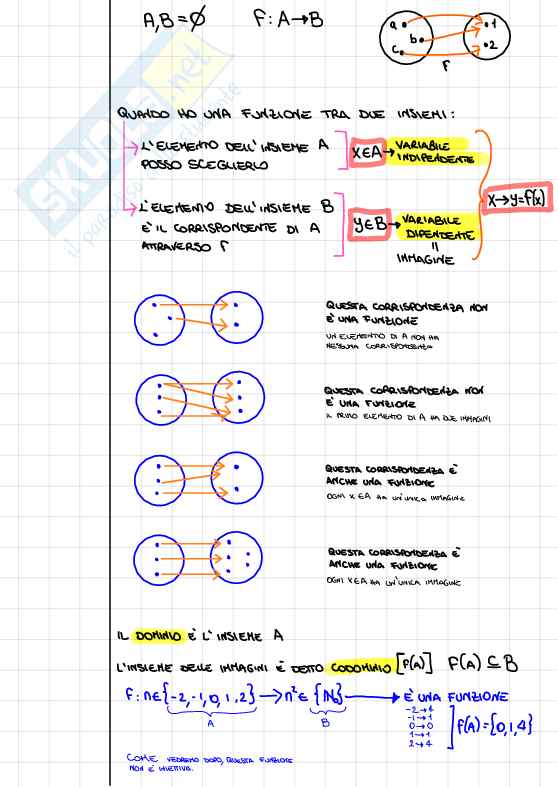 A,B = ∅ F: A → B
a b c 1 2 F
QUANDO HO UNA FUNZIONE TRA DUE INSIEMI:
L'ELEMENTO DELL'INSIEME A
POSSO SCEGLIERLO
x∈A → VARIABILE
INDIPENDENTE
x → y = f(x)
L'ELEMENTO DELL'INSIEME B
E' IL CORRISPONDENTE DI A
ATTRAVERSO F
y∈B → VARIABILE
DIPENDENTE
=
IMMAGINE
QUESTA CORRISPONDENZA NON
E' UNA FUNZIONE
UN ELEMENTO DI A NON HA
NESSUNA CORRISPONDENZA
QUESTA CORRISPONDENZA NON
E' UNA FUNZIONE
IL PRIMO ELEMENTO DI A HA DUE IMMAGINI
QUESTA CORRISPONDENZA E'
ANCHE UNA FUNZIONE
OGNI X∈A HA UN'UNICA IMMAGINE
QUESTA CORRISPONDENZA E'
ANCHE UNA FUNZIONE
OGNI X∈A HA UN'UNICA IMMAGINE
IL DOMINIO E' L'INSIEME A
L'INSIEME DELLE IMMAGINI E' DETTO CODOMINIO [F(A)] F(A) ⊆ B
F: n∈{-2,-1,0,1,2} → n² ∈ {ℕ₀} → E' UNA FUNZIONE
A B
-2→4
-1→1
0→0
1→1
2→4
f(A) = {0,1,4}
COME VEDREMO DOPO, QUESTA FUNZIONE
NON E' INIETTIVA.
SKUOLA.net